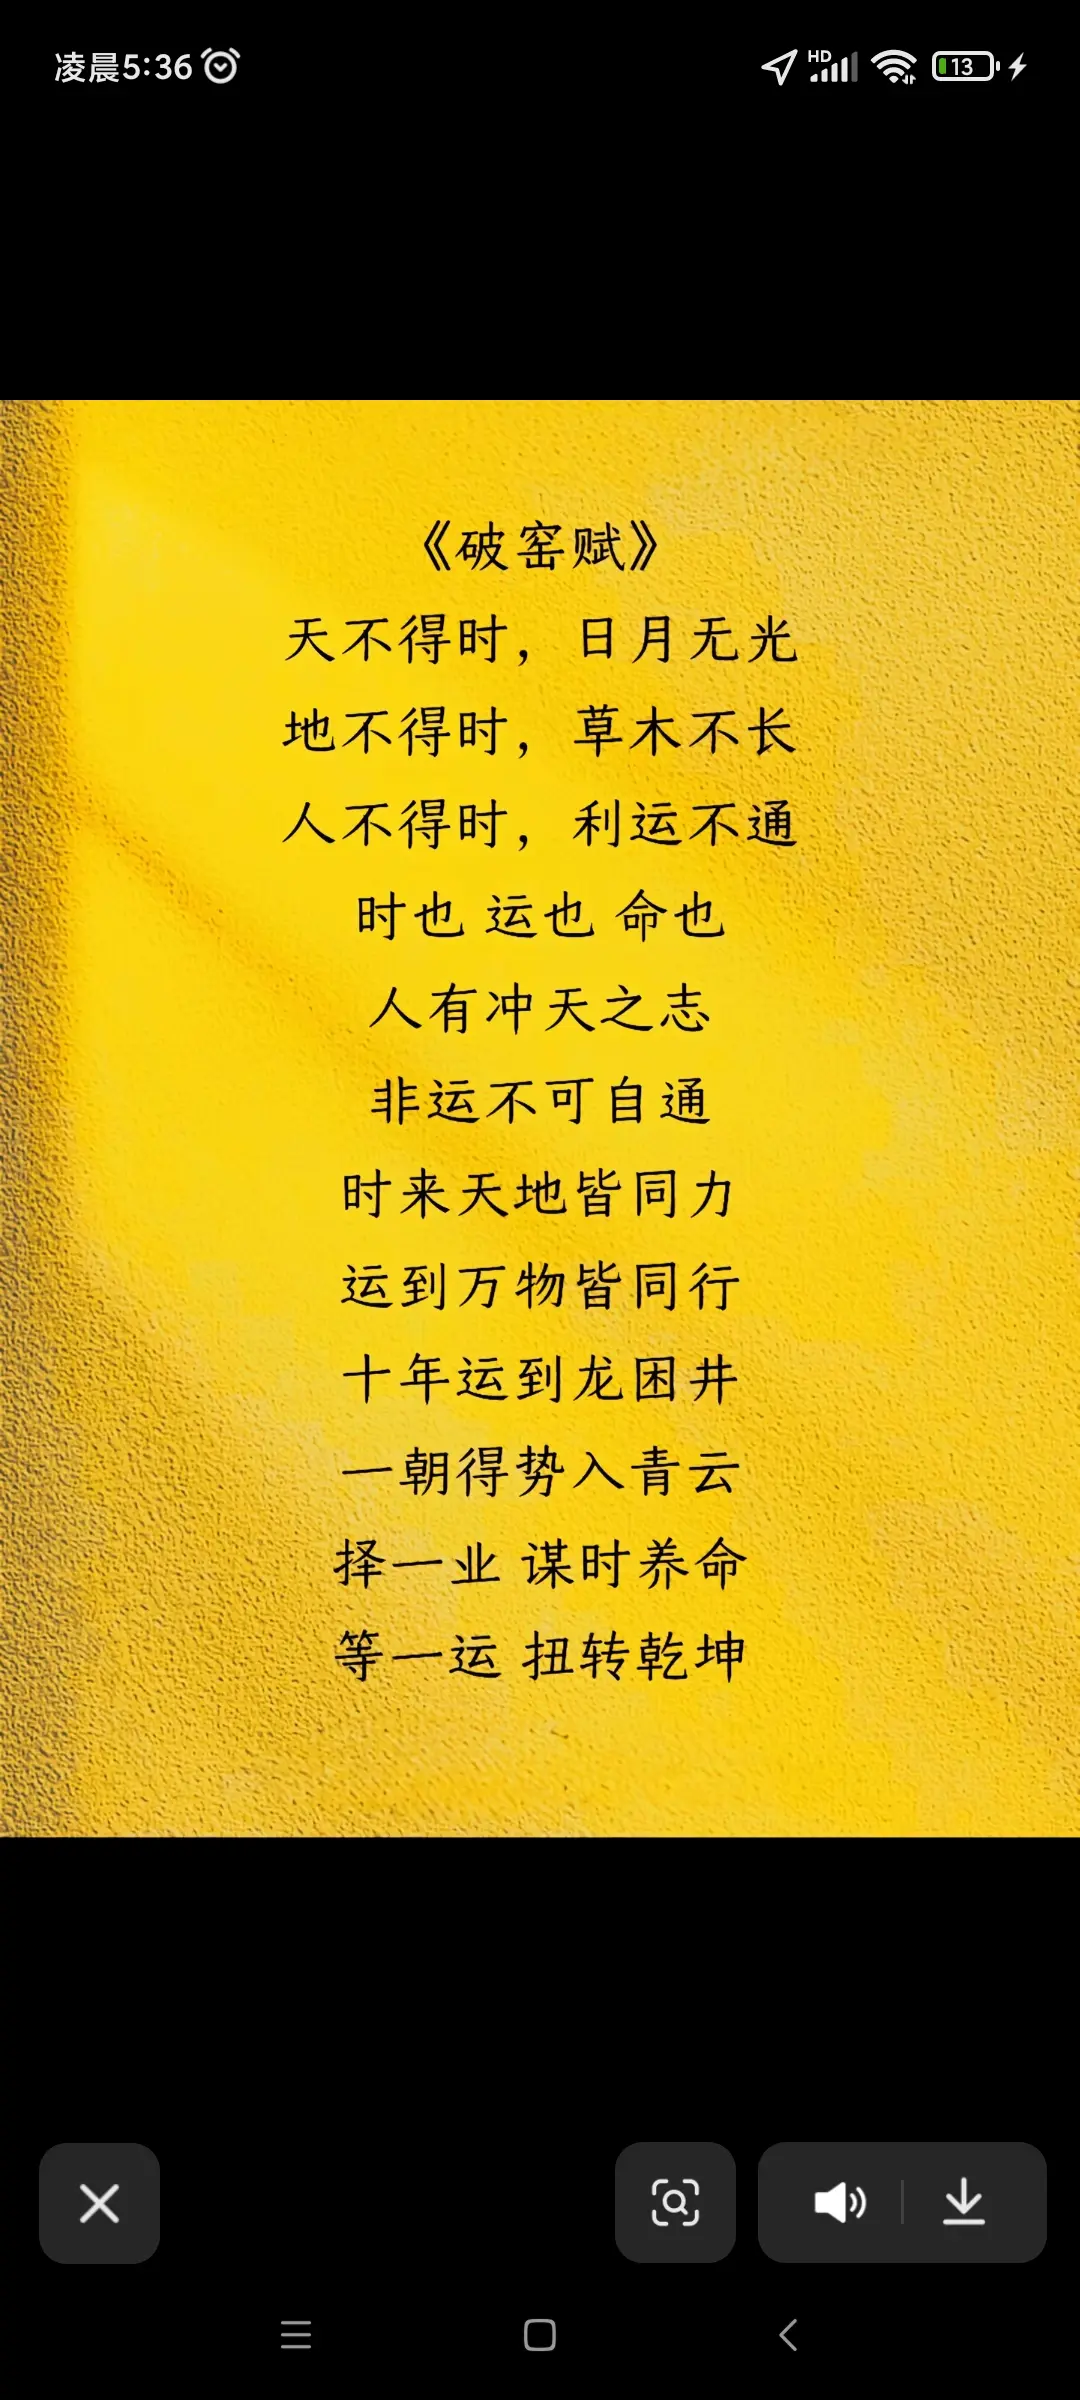 凌晨5:36
HD
13
《破窑赋》
天不得时，日月无光
地不得时，草木不长
人不得时，利运不通
时也 运也 命也
人有冲天之志
非运不可自通
时来天地皆同力
运到万物皆同行
十年运到龙困井
一朝得势入青云
择一业 谋时养命
等一运 扭转乾坤